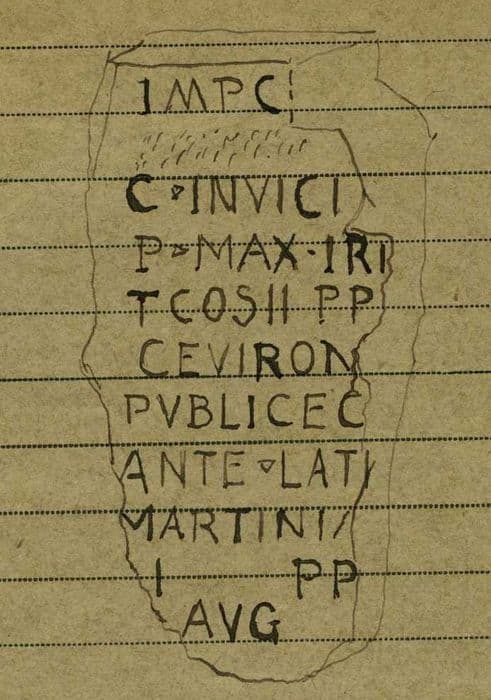 IMP C
C ▿ INVICI
P ▹ MAX · IRI
T COS II PP
CEVIRON
PVBLICE C
ANTE ▿ LATI
MARTINI/
I PP
AVG